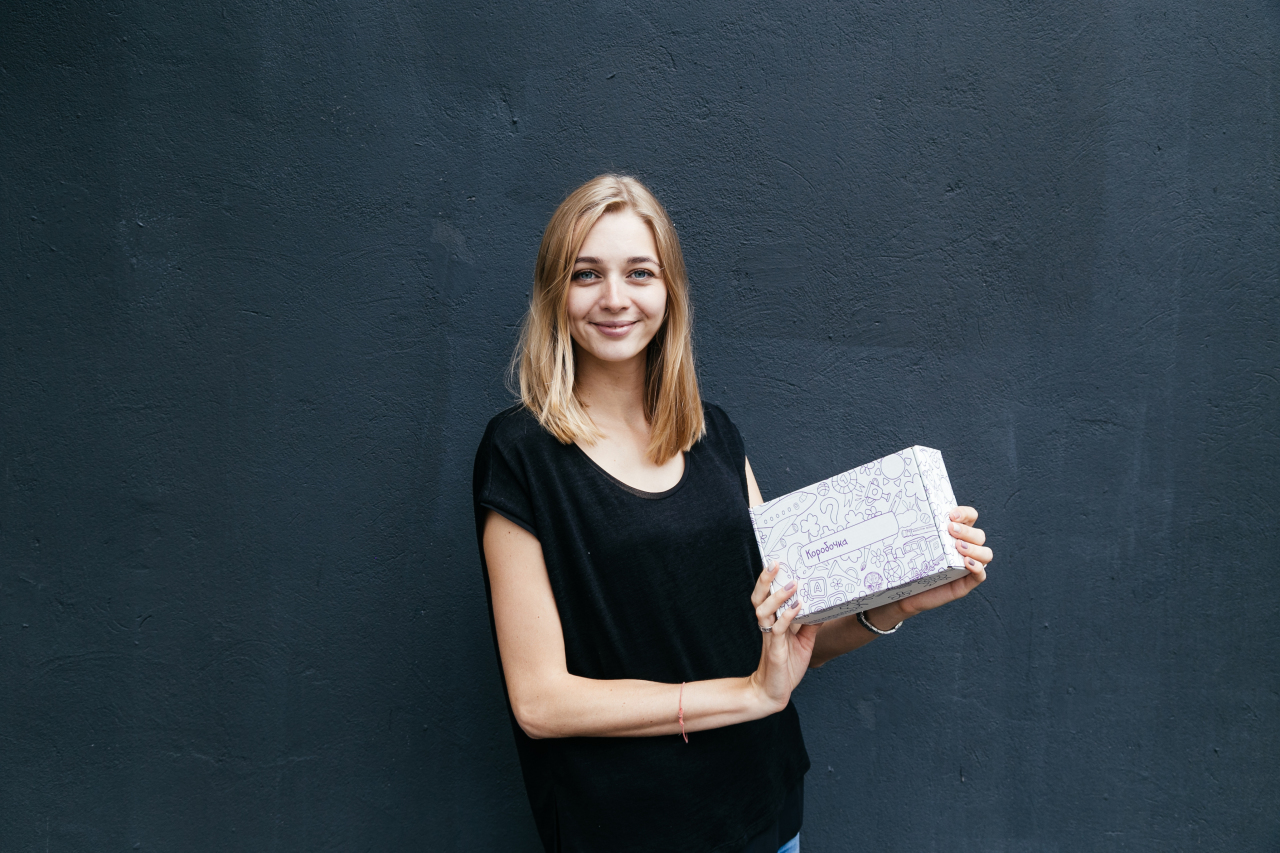 Коробочка